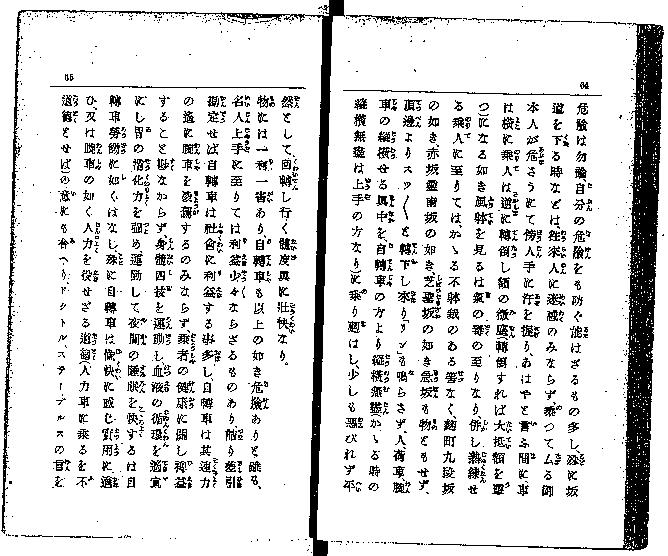 64
危險は勿論自分の危險をも防ぐ能はざるもの多し、殊に坂
道を下る時などは往來人に迷惑のみならず乘つてムる御
本人が危さうにて傍人手に汗を握り、あはやと言ふ間に車
は橫に乘人は逆に轉倒し額の微塵轉倒すれば大抵額を
つになる如き風躰を見るは氣の毒の至りなり、併し熟練せ
る乘人に至りてはかゝる不躰裁のある筈なく、麹町九段坂
の如き赤坂靈南坂の如き芝聖坂の如き急坂も物ともせず、
頂邊よりスツ〳〵と轉下し來り「リン」も鳴らさず、人荷車、腕
車の縱橫せる眞中を自轉車の方より縱橫無盡かゝる時の
縱橫無盡は上手の方なり)に乘り廻はし、少しも惡びれず平
65
然として回轉し行く體度實に壯快なり。
物には一利一害あり、自轉車も以上の如き危險ありと雖も、
名人上手に至りては利益少々ならざるものあり、
せば自轉車は社會に利益する事多し、自轉車は其速力
の遙に腕車を凌駕するのみならず、乘者の健康に關し裨益
すること尠なからず、身體四肢を運動し血液の循環を適宜
にし胃の消化力を强め運動して夜間の睡眠を快するは自
轉車勞働に如くはなし、殊に自轉車は愉快に感じ實用に適
ひ、又は腕車の如く人力を役せざる道德(人力車に乘るを不
道德とせば)の意にも合へりドクトル、ステープルスの言を